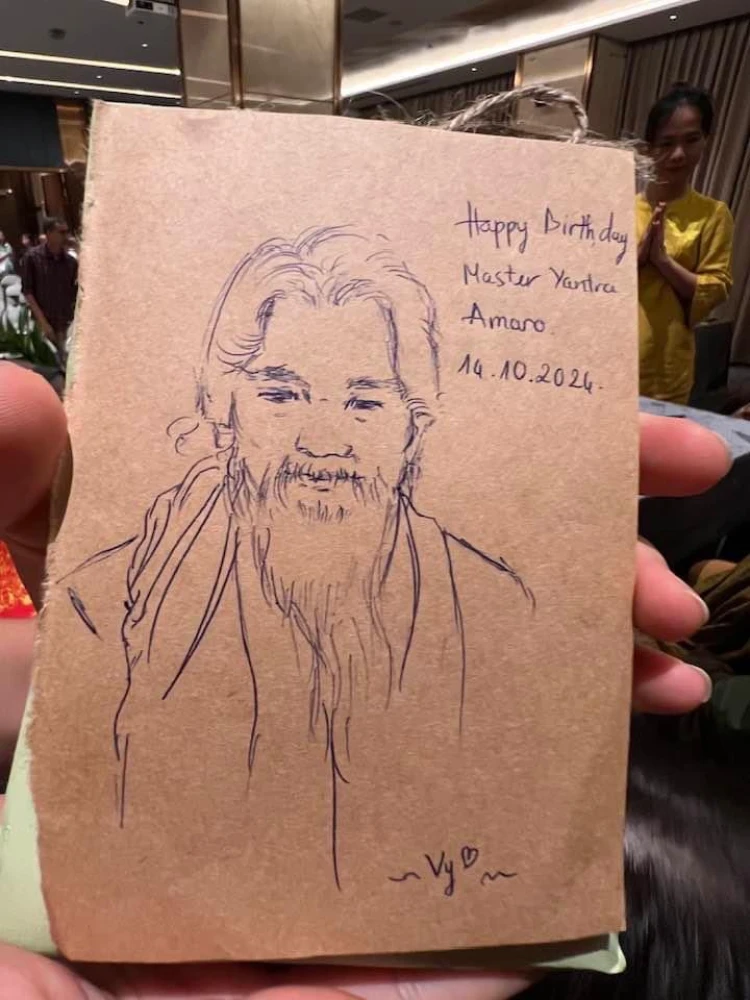 Happy Birthday
Master Yantra
Amaro.
14.10.2024.
~ Vy♡ ~